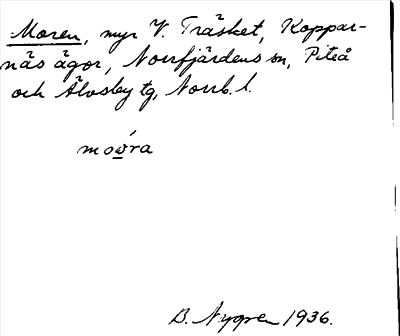 Moren, myr V. Träsket, Koppar-
näs ägor, Norrfjärdens sn, Piteå
och Älvsby tg, Norrb. l.
moẁ̲ra
B. Nygren 1936.